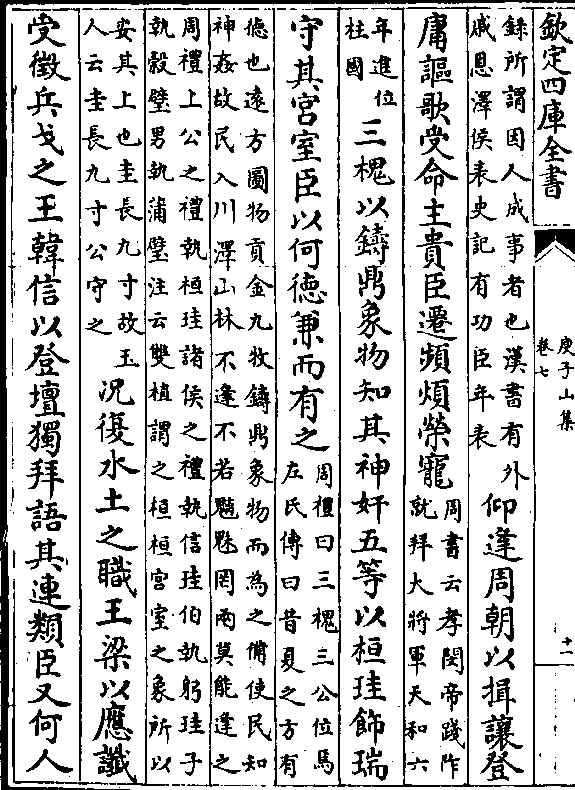 欽定四庫全書
庾子山集
卷七
十一
錄所謂因人成事者也漢書有外
戚恩澤侯表史記有功臣年表
仰逢周朝以揖讓登
庸謳歌受命主貴臣遷頻煩榮寵
周書云孝閔帝踐阼
就拜大將軍天和六
年進位
柱國
三槐以鑄鼎象物知其神奸五等以桓珪飾瑞
守其宮室臣以何德兼而有之
周禮曰三槐三公位焉
左氏傳曰昔夏之方有
德也遠方圖物貢金九牧鑄鼎象物而為之備使民知
神姦故民入川澤山林不逢不若魑魅罔兩莫能逢之
周禮上公之禮執桓珪諸侯之禮執信珪伯執躬珪子
執穀璧男執蒲璧注云雙植謂之桓桓宮室之象所以
安其上也圭長九寸故玉
人云圭長九寸公守之
況復水土之職王梁以應讖
受徵兵戈之王韓信以登壇獨拜語其連類臣又何人